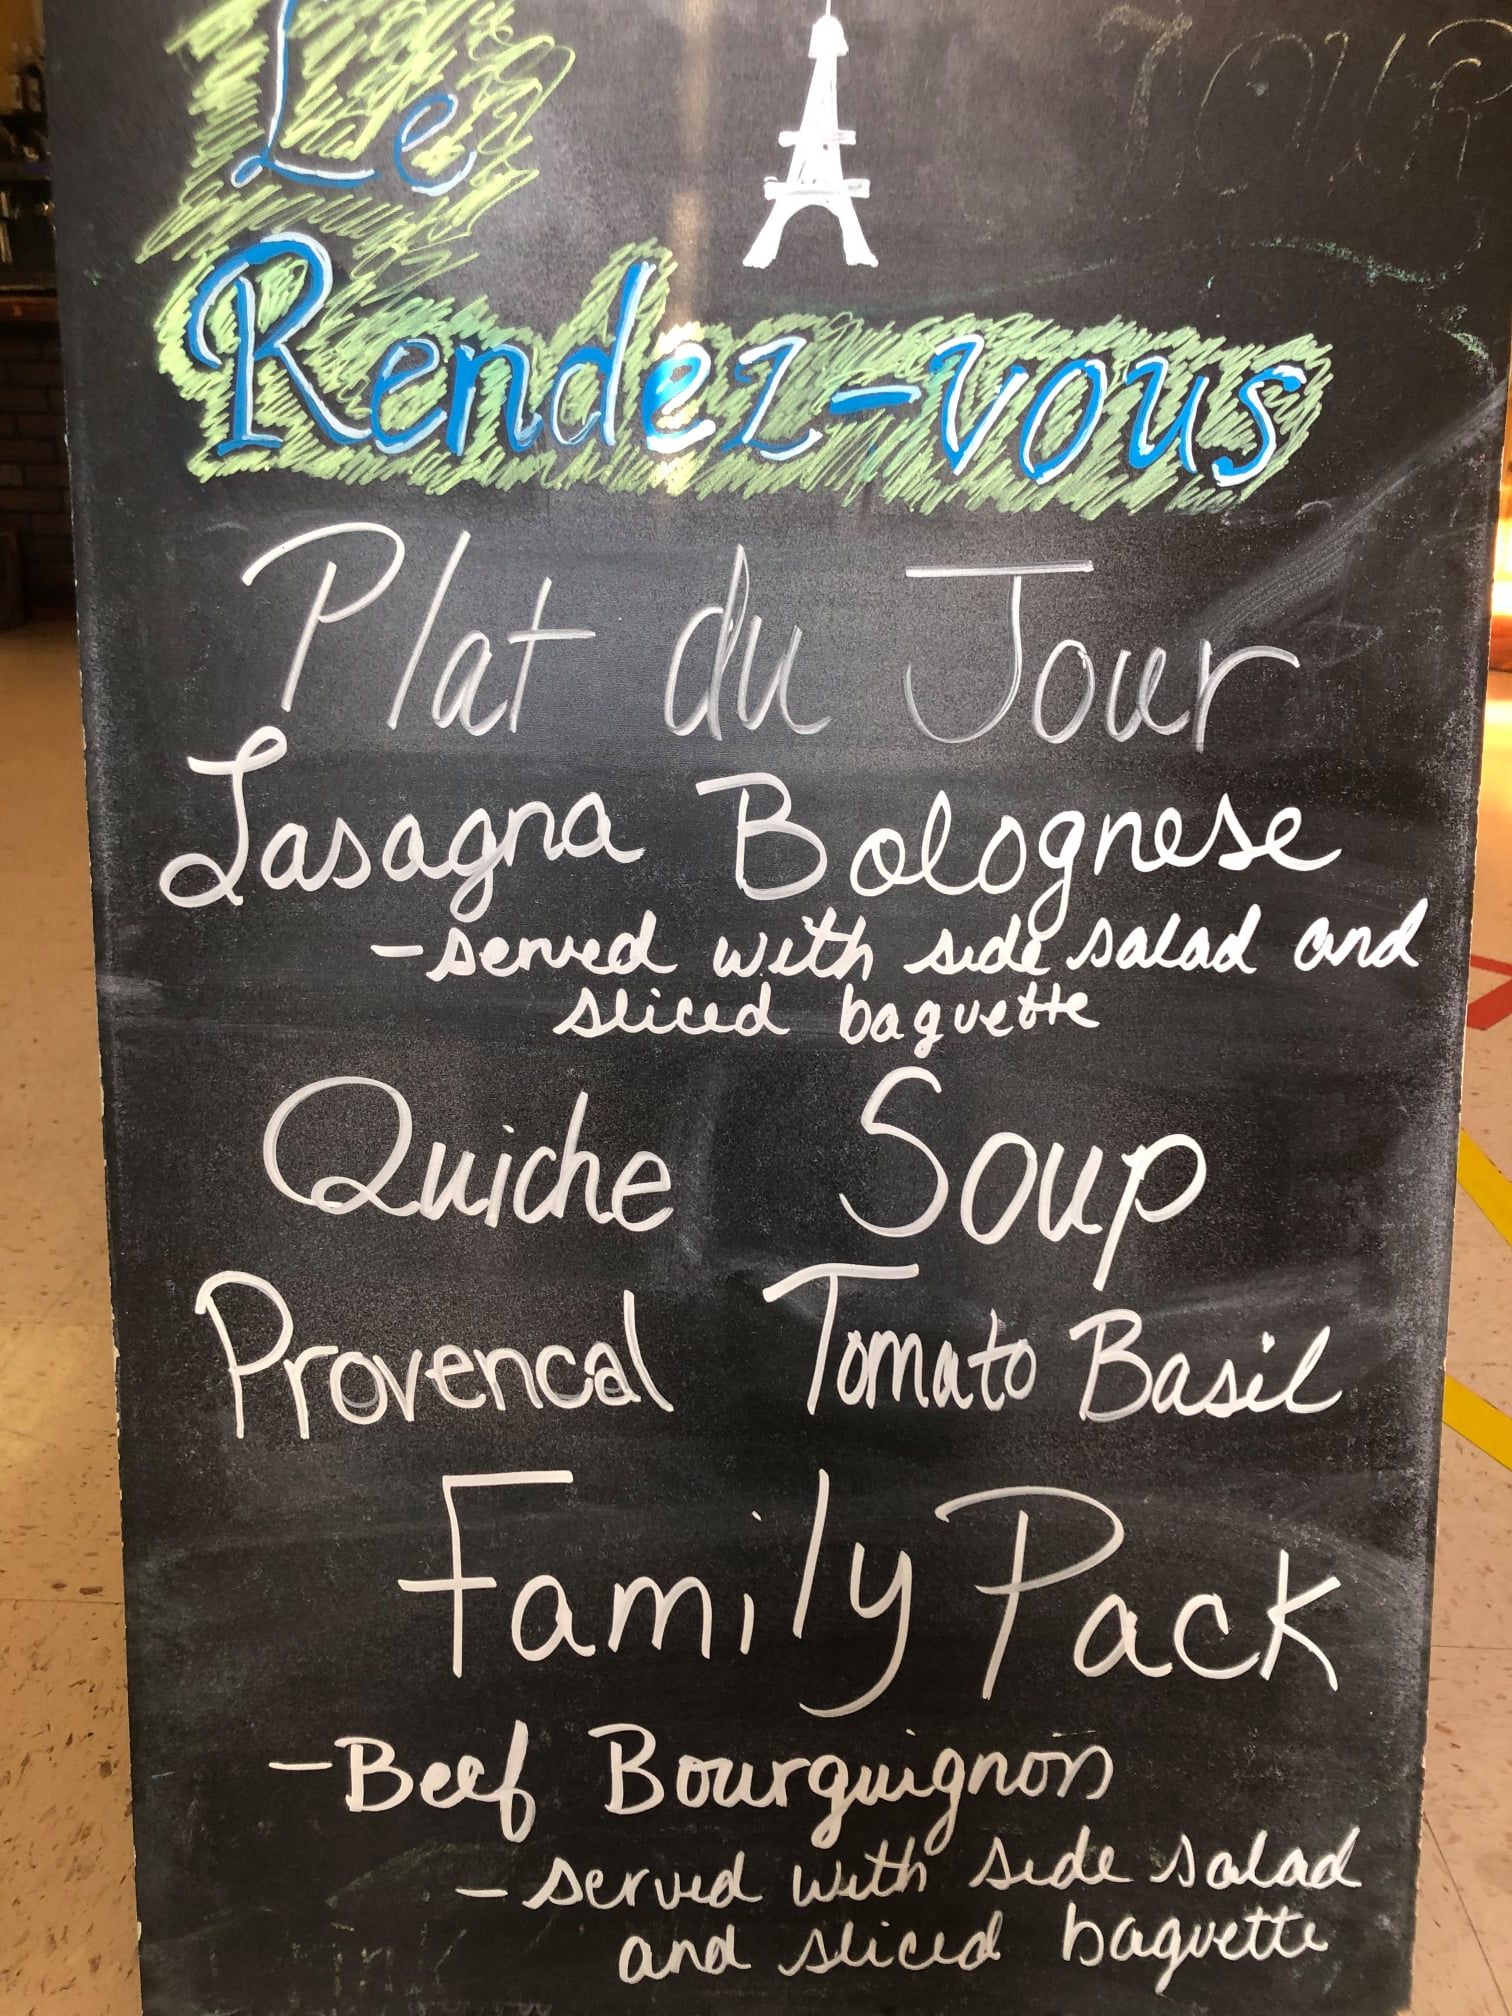 Le
Rendez-vous
Plat du Jour
Lasagna Bolognese
- served with side salad and
sliced baguette
Quiche Soup
Provencal Tomato Basil
Family Pack
- Beef Bourguignon
- served with side salad
and sliced baguette